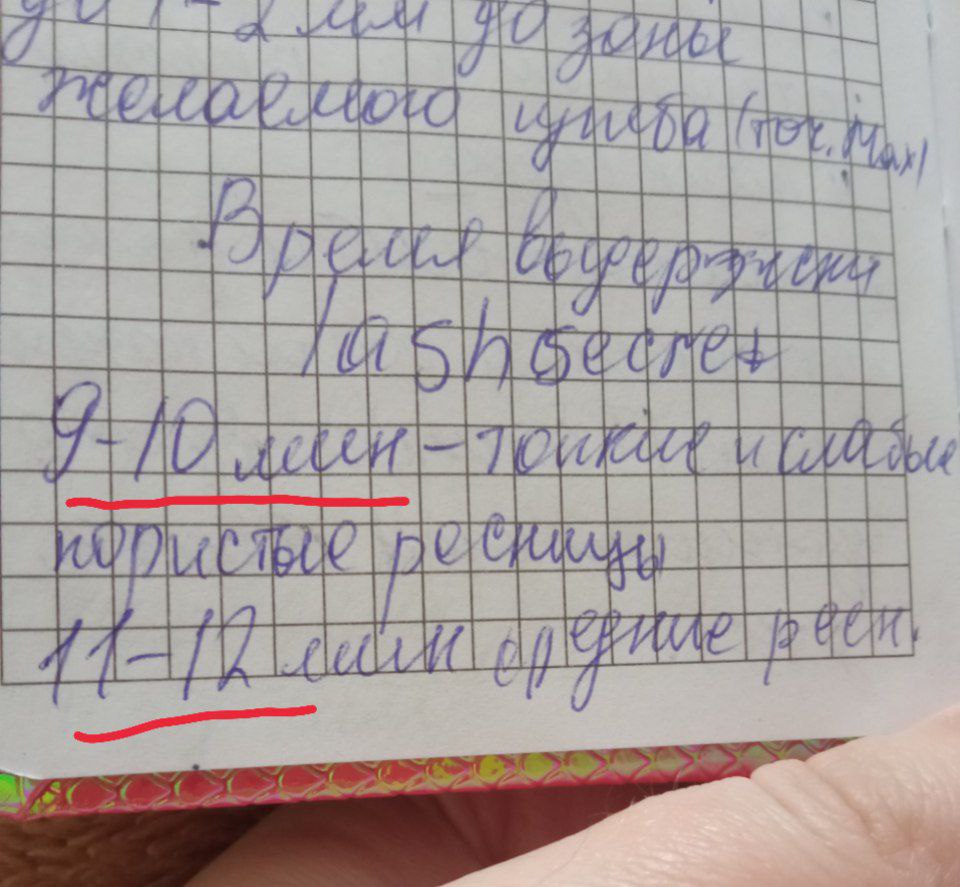 до 1-2 мм до зоны
желаемого изгиба (точ. Max)
Время выдержки
lash secret
9-10 мин - тонкие и слабые
пористые ресницы
11-12 мин средние ресн.